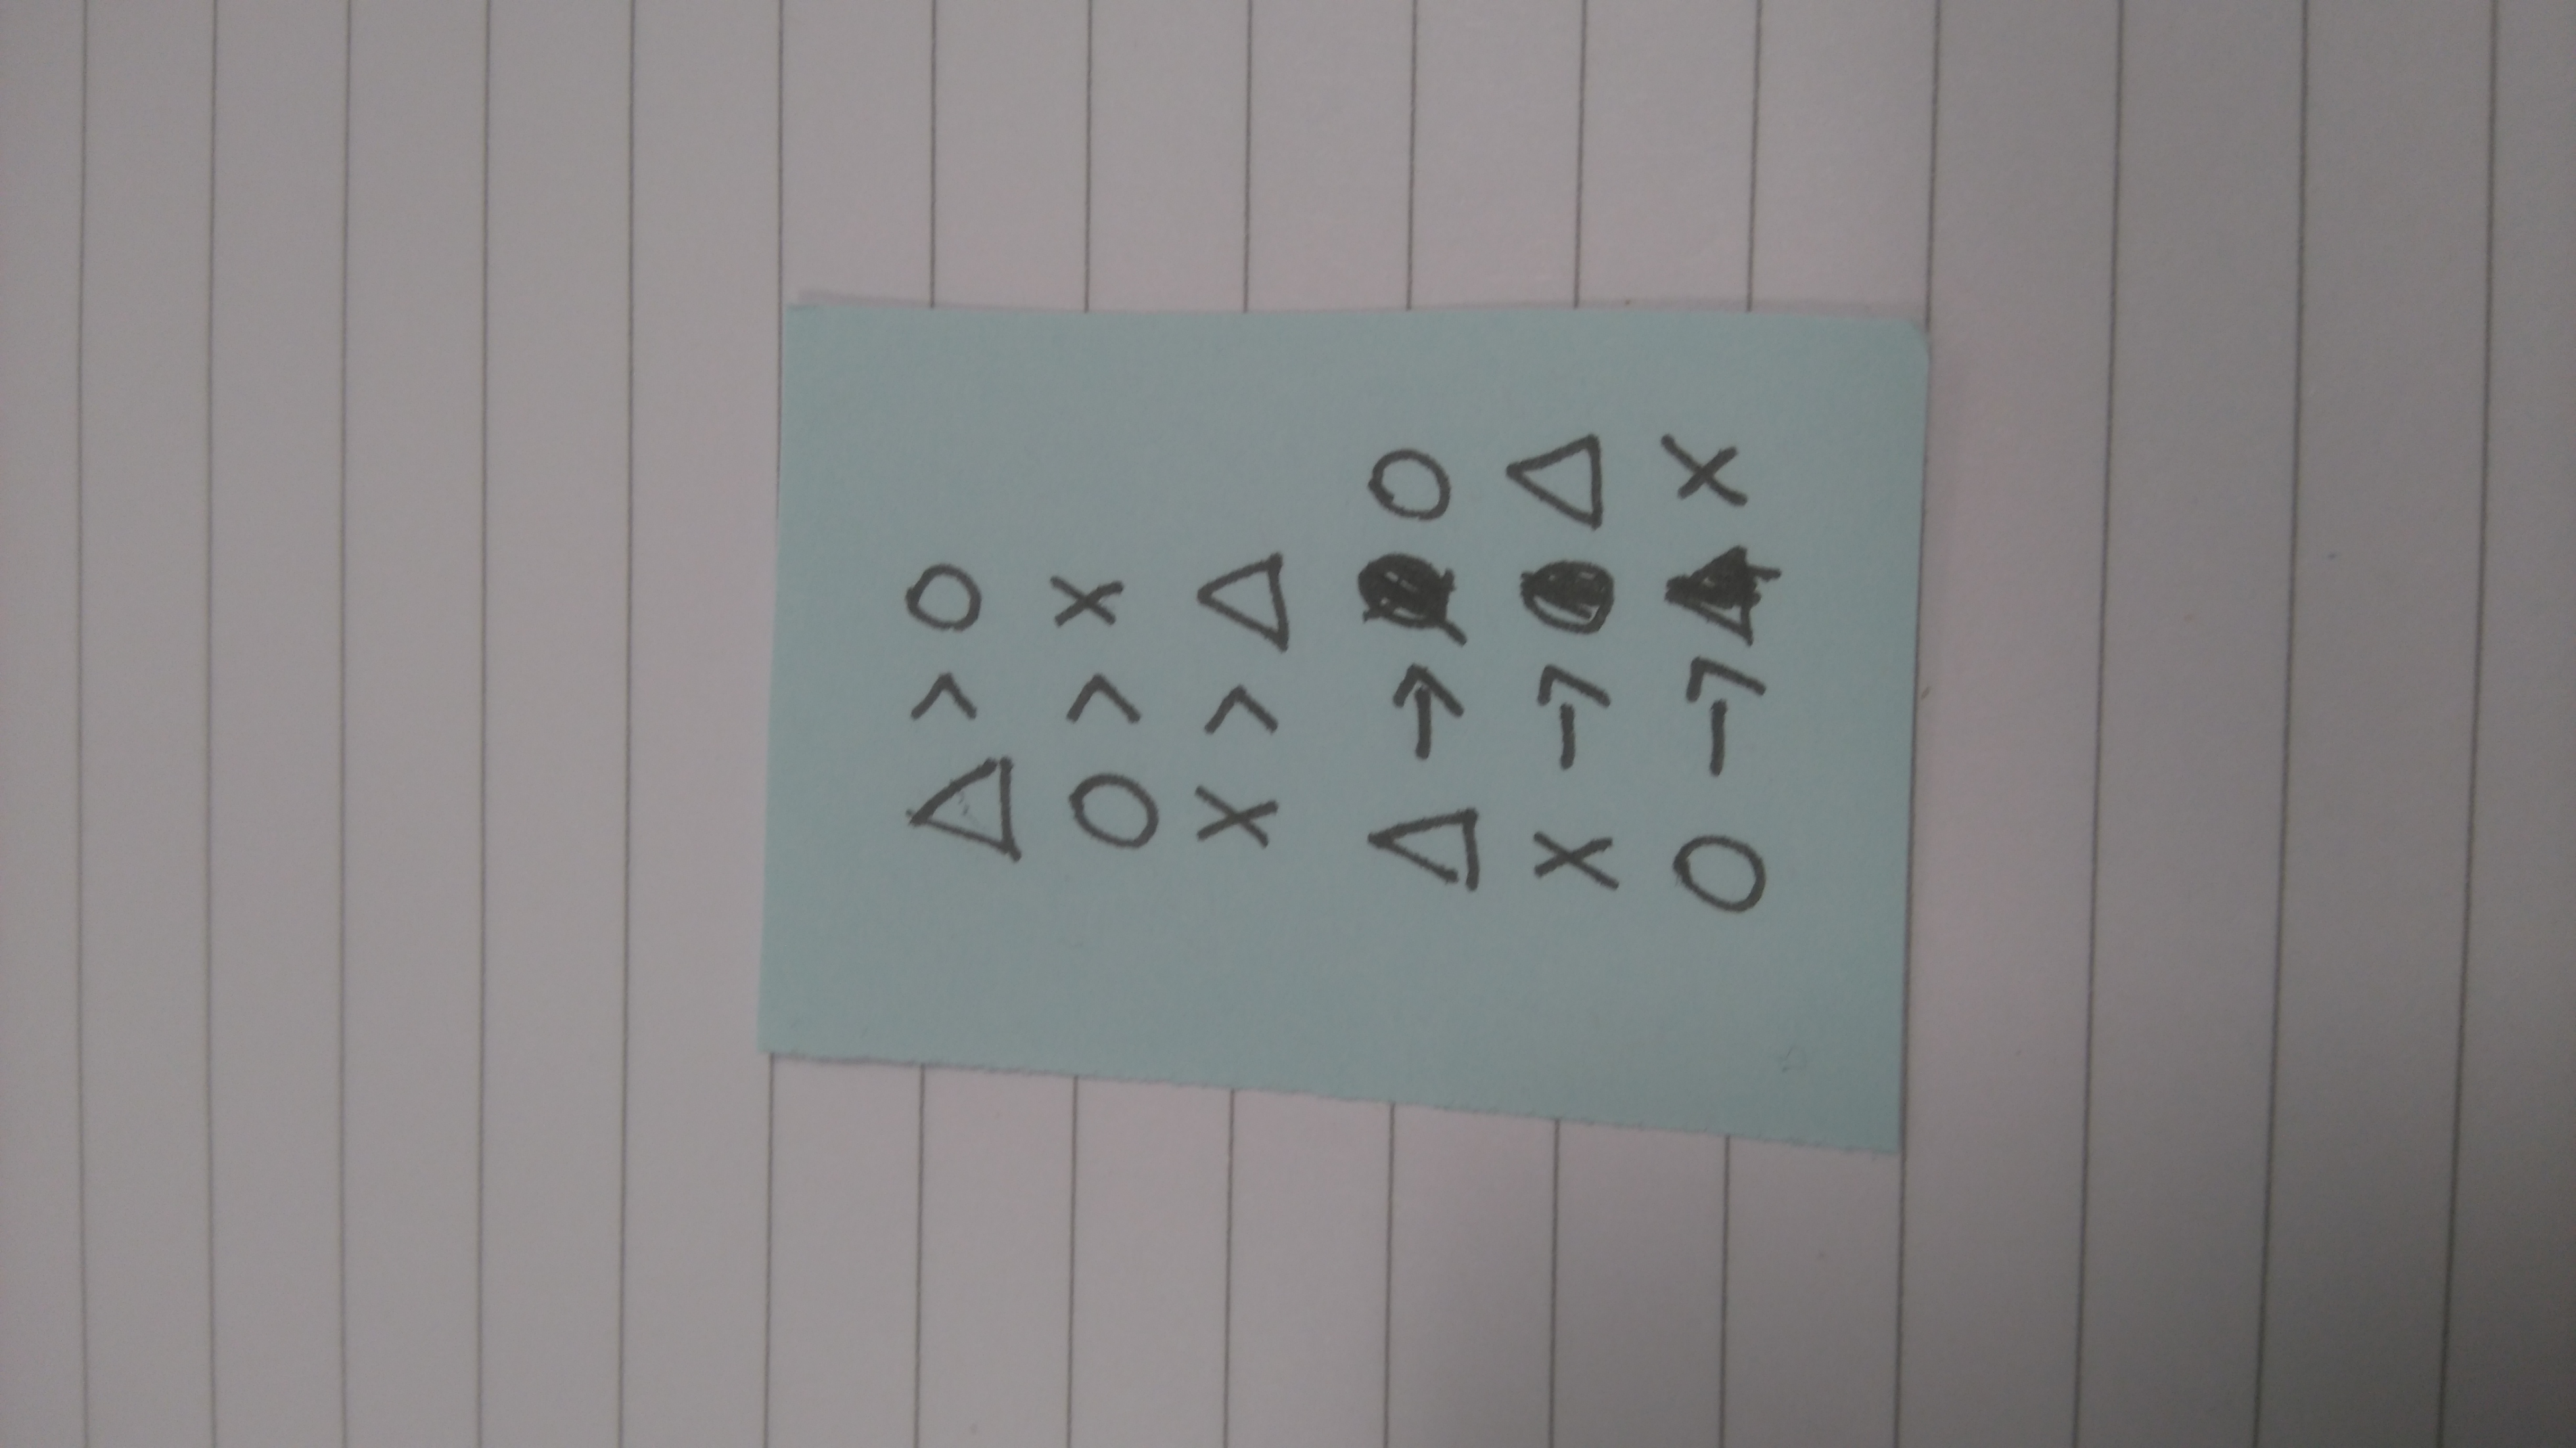 △ > O
O > X
X > △
△ → O
X → △
O → X